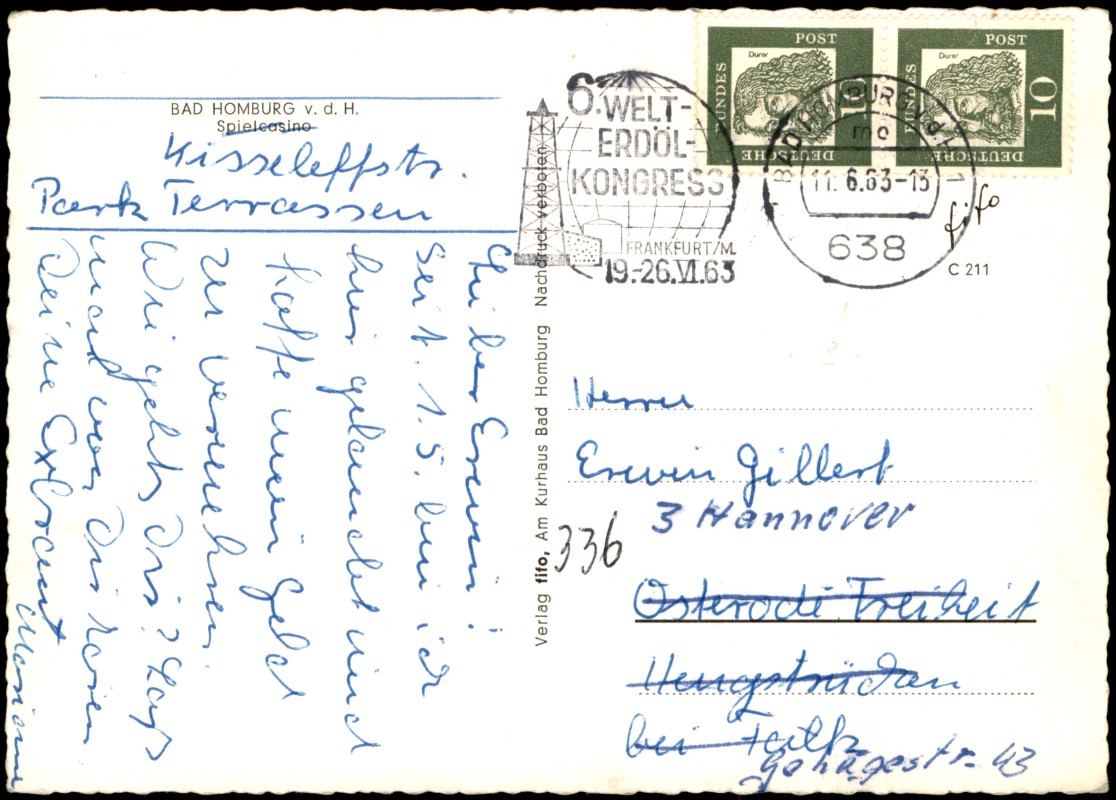 BAD HOMBURG v. d. H.
Spielcasino
Kisseleffstr.
Park Terrassen
Lieber Erwin!
Seit 1.5. bin ich
hier gelandet und
hoffe mein Geld
zu vermehren.
Wie geht's Dir? Lass
mal von Dir hören
Deine Exbraut
Verlag fifo, Am Kurhaus Bad Homburg Nachdruck verboten
6. WELT-
ERDÖL-
KONGRESS
FRANKFURT/M.
19.-26.VI.63
DEUTSCHE BUNDESPOST
Dürer
10
DEUTSCHE BUNDESPOST
Dürer
10
BAD HOMBURG v.d.H. 1
mc
11. 6.63-13
638
fifo
C 211
Herrn
Erwin Gillert
3 Hannover
336
Osterode Freiheit
bei Falk
Gehägestr. 43